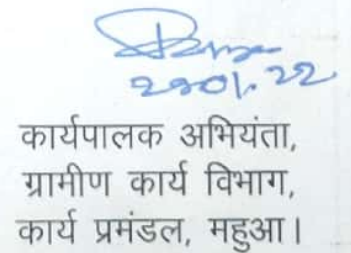 कार्यपालक अभियंता,
ग्रामीण कार्य विभाग,
कार्य प्रमंडल, महुआ।